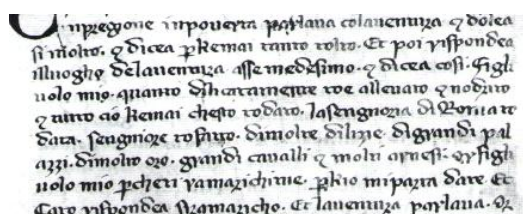 Unpregione inpoverta parlava colaventura ⁊ dolea
si molto. ⁊ dicea p̱kemai tanto tolto. Et poi rispondea
illuogho delaventura asse medesimo. ⁊ dicea cosi. Figli
uolo mio. quanto dilicatamente toe allevato ⁊ nodrito
⁊ tutto cio kemai chesto to dato. lasengnoria di Roma to
data. sengniore to fatto. dimolte dilizie. digrandi pal
azzi. dimolto oro. grandi cavalli ⁊ molti arnesi. Or figli
uolo mio p̱cheti ramarichime. p̱kio miparta date. Et
rispondea Siramaricho. Et laventura parlava. Or